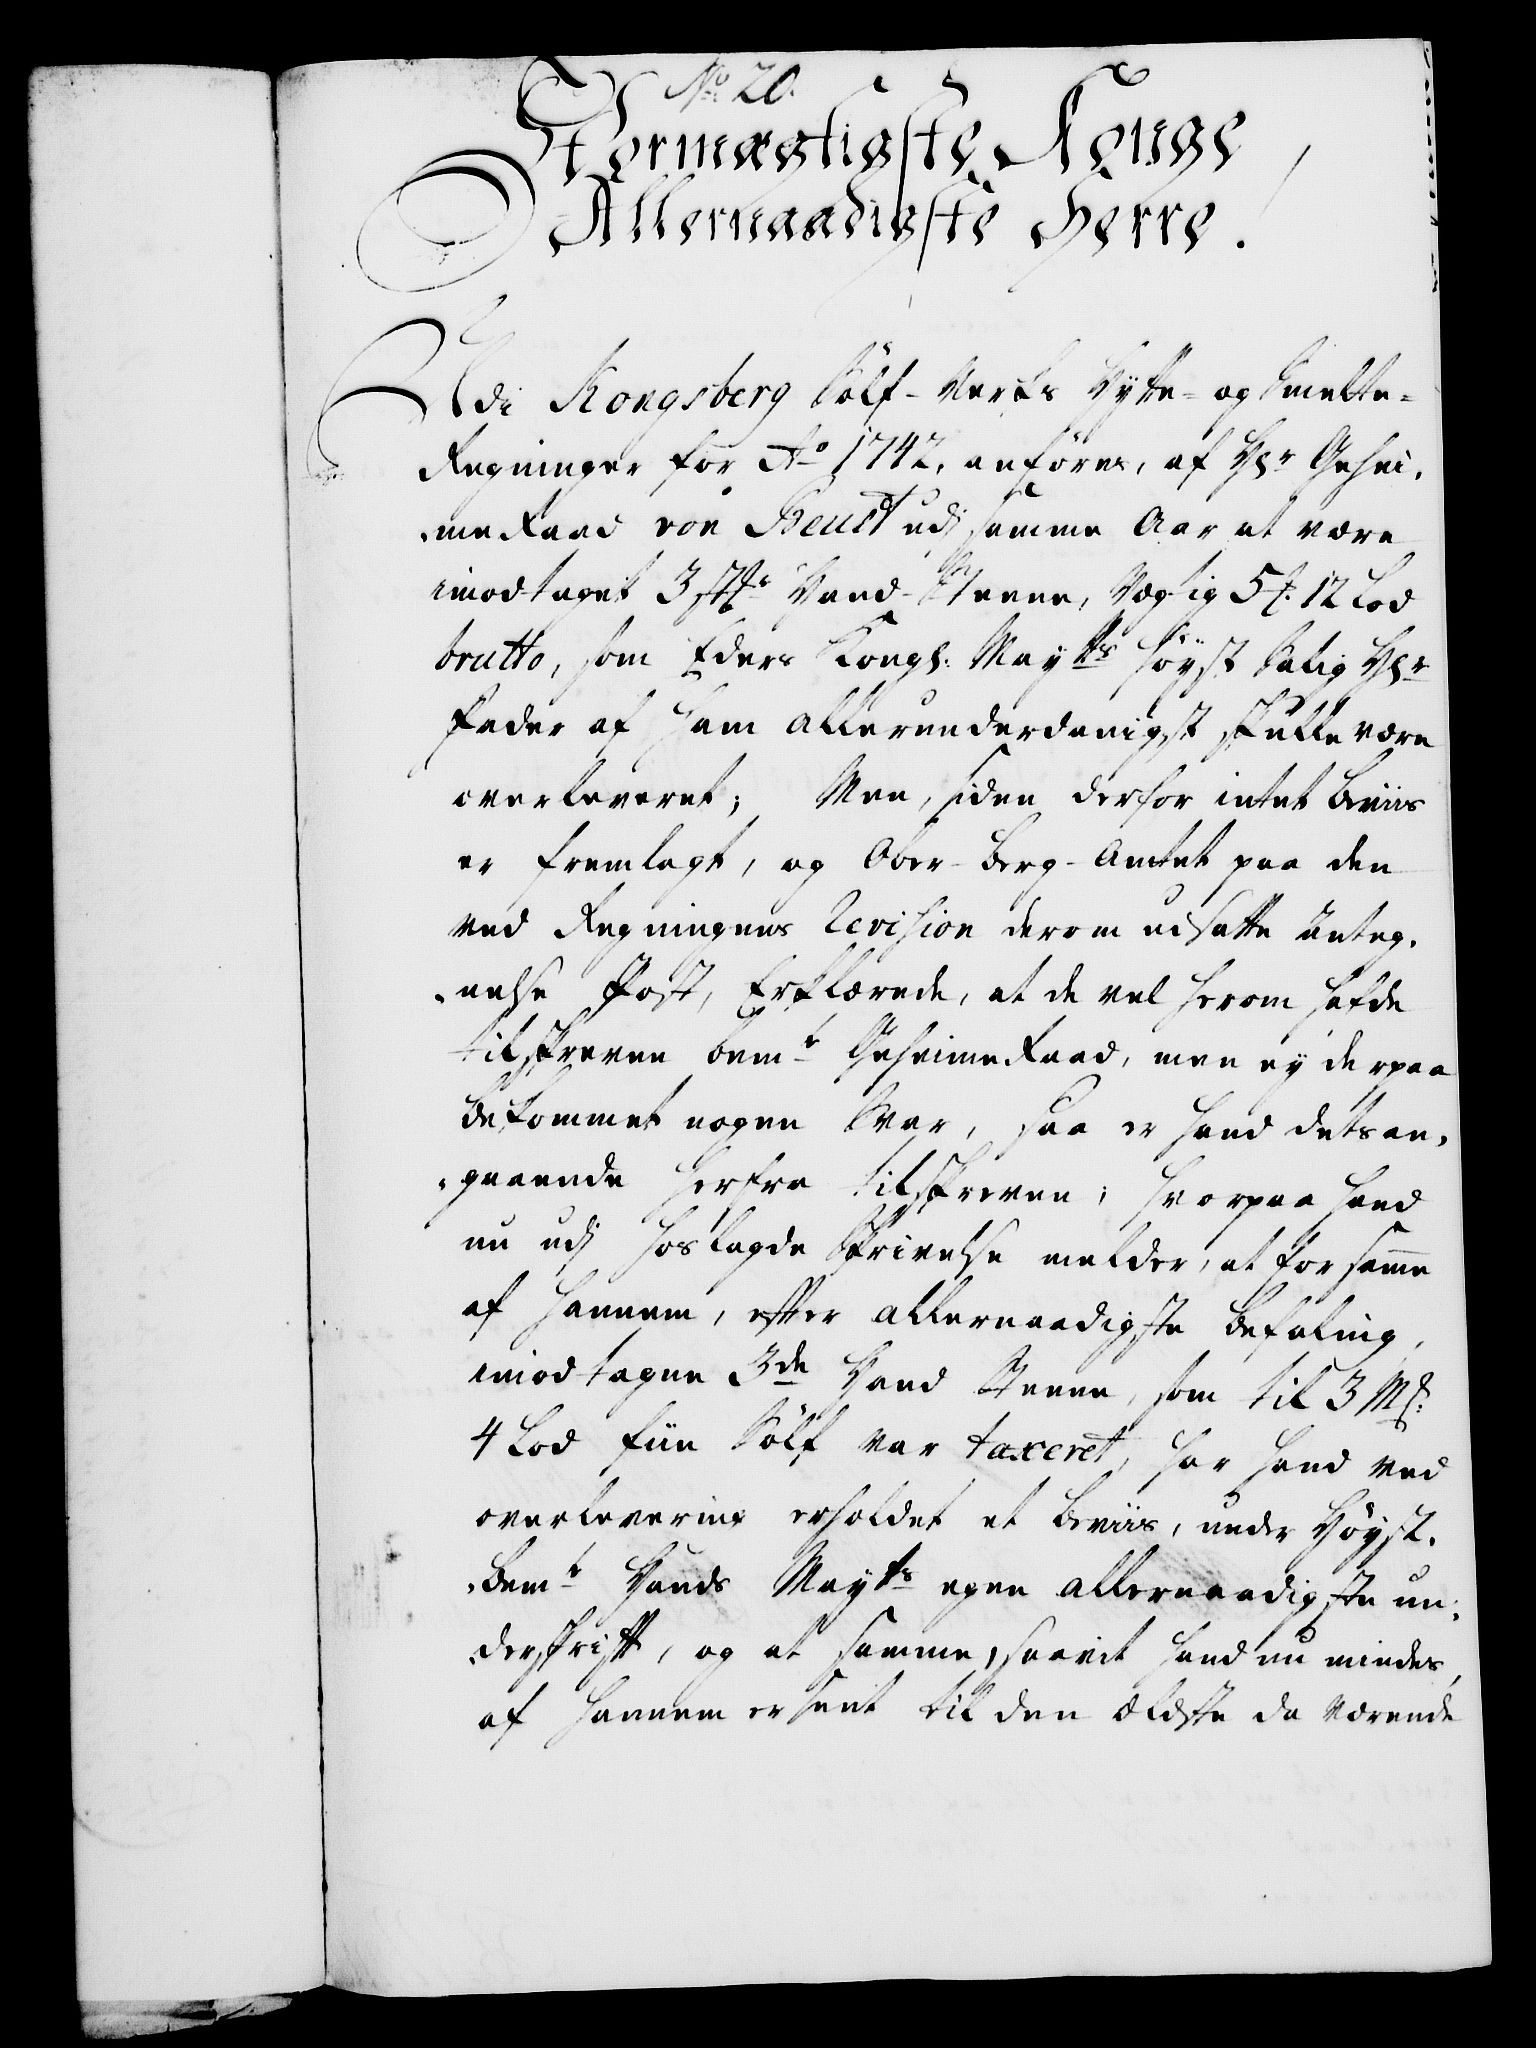 No: 20.
Stormægtigste Konge
Allernaadigste Herre!
Udi Kongsberg Sölf-Verks Hytte- og Smelte-
Regninger for Ao 1742, anföres, af Hr Gehei-
-me Raad von Beust udj samme Aar at være
imodtaget 3 stk: Hand-Steene, Vægtig 5 ℔: 12 Lod
brutto, som Eders Kongl: Maytts höyst Salig Hr
Fader af ham allerunderdanigst skulle være
overleveret; Men, siden derfor intet beviis
er fremlagt, og Ober-Berg-Amtet paa den
ved Regningens Revision derom udsatte Anteg-
-nelse Post, Erklærede, at de vel herom hafde
tilskreven bemte Geheime Raad, men ey derpaa
bekommet nogen Svar, saa er hand dets an-
-gaaende herfra tilskreven; hvorpaa hand
nu udj hoslagde Skrivelse melder, at for samme
af hannem, efter allernaadigste befaling,
imodtagne 3de Hand Steene, som til 3 Mk:
4 Lod fiin Sölf var taxeret, har hand ved
overlevering erholdet et beviis, under Höyst-
-bemte Hands Mayts egen allernaadigste un-
-derskrift, og at samme, saavit hand nu mindes,
af hannem er sent til den ældste da værende